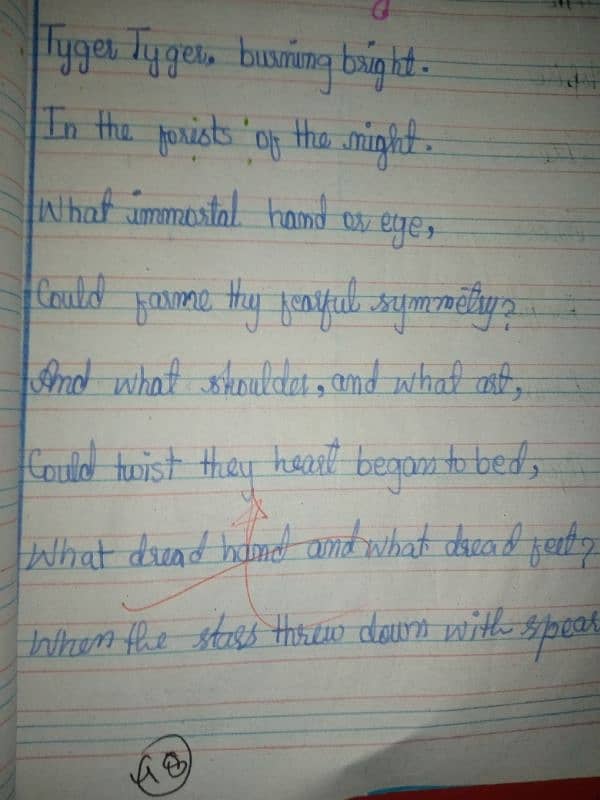 Tyger Tyger, burning bright.
In the forists of the night.
What immortal hand or eye,
Could farme thy fearful symmetry?
And what shoulder, and what art,
Could twist they heart began to bed,
What dread hand and what dread feet?
When the stars threw down with spear